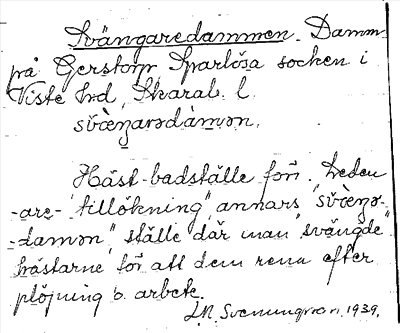 Svängaredammen. Damm
på Gerstorp, Sparlösa socken i
Viste hrd, Skarab. l.
svæŋarədàmən.
Häst-badställe förr.
-are- "tillökning", annars "svæŋə-
-damən", ställe där man "svängde"
hästarne för att dem rena efter
plöjning o. arbete.
L.N. Svenungsson. 1939.